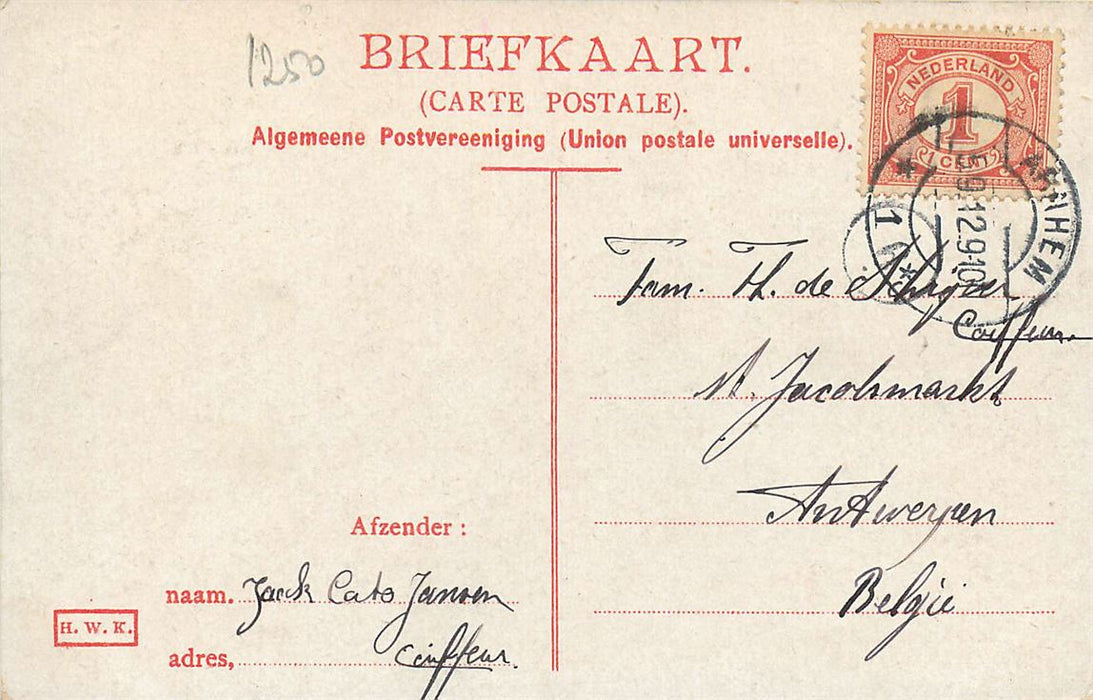 1250
BRIEFKAART.
(CARTE POSTALE).
Algemeene Postvereeniging (Union postale universelle).
NEDERLAND
1
1 CENT
ARNHEM
9.12.9-10
1
Fam. Th. de
Coiffeur
St. Jacobsmarkt
Antwerpen
België
Afzender :
naam. Jack Cato Jansen
H. W. K.
adres, coiffeur.